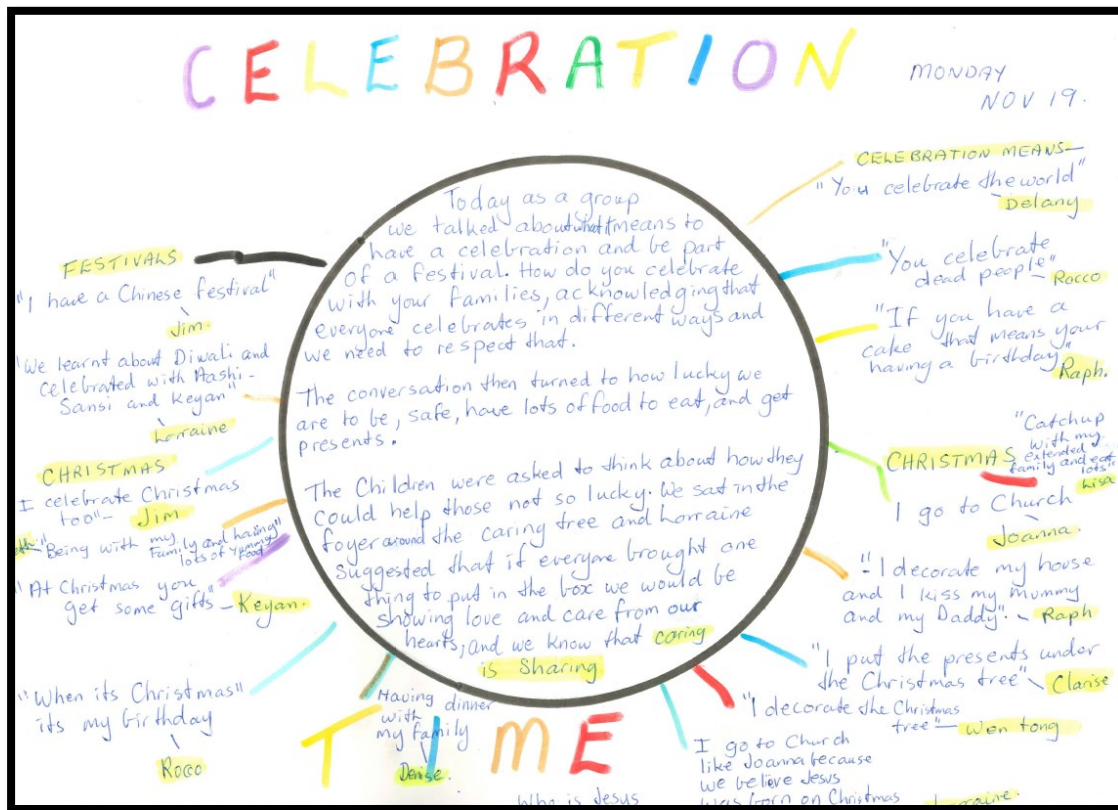 CELEBRATION
MONDAY
NOV 19.
Today as a group
we talked about what it means to
have a celebration and be part
of a festival. How do you celebrate
with your families, acknowledging that
everyone celebrates in different ways and
we need to respect that.
The conversation then turned to how lucky we
are to be, safe, have lots of food to eat, and get
presents.
The Children were asked to think about how they
could help those not so lucky. We sat in the
foyer around the caring tree and Lorraine
suggested that if everyone brought one
thing to put in the box we would be
showing love and care from our
hearts, and we know that caring
is Sharing
FESTIVALS
"I have a Chinese festival"
Jim.
"We learnt about Diwali and
celebrated with Aashi-
Sansi and Keyan"
Lorraine
CHRISTMAS
I celebrate Christmas
too" - Jim
"Being with my
Family and having
lots of yummy
food"
"At Christmas you
get some gifts - Keyan.
"When its Christmas"
its my birthday
Rocco
CELEBRATION MEANS-
"You celebrate the world"
Delany
"You celebrate
dead people"
Rocco
"If you have a
cake that means your
having a birthday"
Raph.
CHRISTMAS
"Catchup
with my
extended
family and eat
lots"
Lisa
I go to Church
Joanna.
"I decorate my house
and I kiss my mummy
and my Daddy".
Raph
"I put the presents under
the Christmas tree"
Clarise
"I decorate the Christmas
tree" - Wen tong
I go to Church
like Joanna because
we believe Jesus
was born on Christmas
Lorraine.
Having dinner
with
my family
Denise.
TIME
Who is Jesus